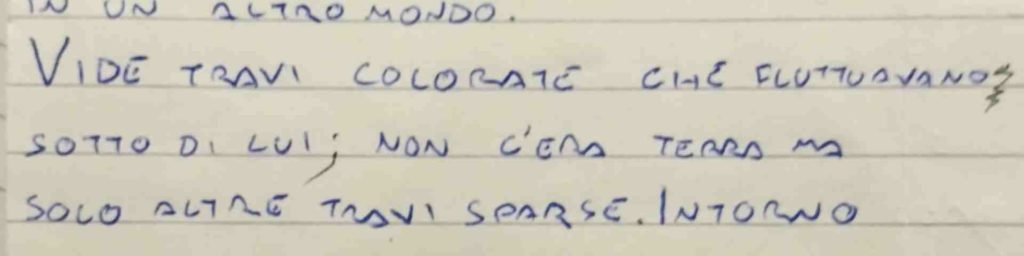 IN UN ALTRO MONDO.
VIDE TRAVI COLORATE CHE FLUTTUAVANO
SOTTO DI LUI; NON C'ERA TERRA MA
SOLO ALTRE TRAVI SPARSE. INTORNO